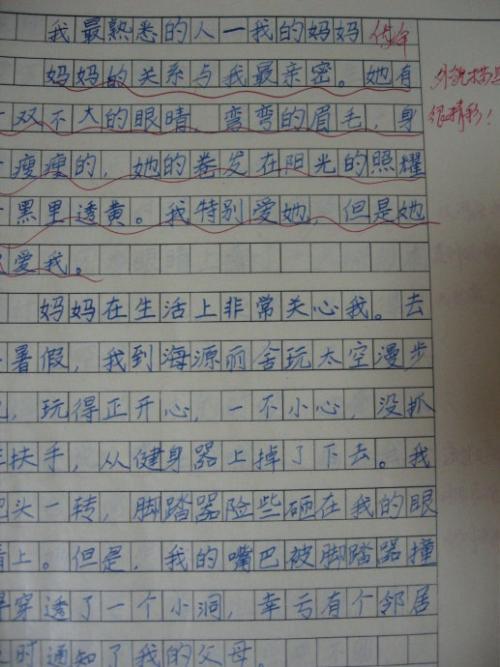 我最熟悉的人—我的妈妈
妈妈的关系与我最亲密。她有
双不大的眼睛，弯弯的眉毛，身
瘦瘦的，她的卷发在阳光的照耀
黑里透黄。我特别爱她，但是她
爱我。
妈妈在生活上非常关心我。去
暑假，我到海源丽舍玩太空漫步
，玩得正开心，一不小心，没抓
扶手，从健身器上掉了下去。我
头一转，脚踏器险些砸在我的眼
上。但是，我的嘴巴被脚踏器撞
穿透了一个小洞，幸亏有个邻居
时通知了我的父母。
外貌描写
很精彩！